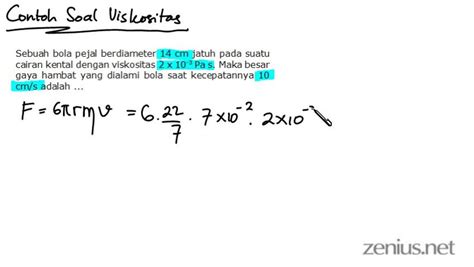 Contoh Soal Viskositas
Sebuah bola pejal berdiameter 14 cm jatuh pada suatu
cairan kental dengan viskositas 2 x 10⁻³ Pa s. Maka besar
gaya hambat yang dialami bola saat kecepatannya 10
cm/s adalah ...
F = 6πrηv = 6. 22/7 . 7×10⁻² . 2×10⁻
zenius.net